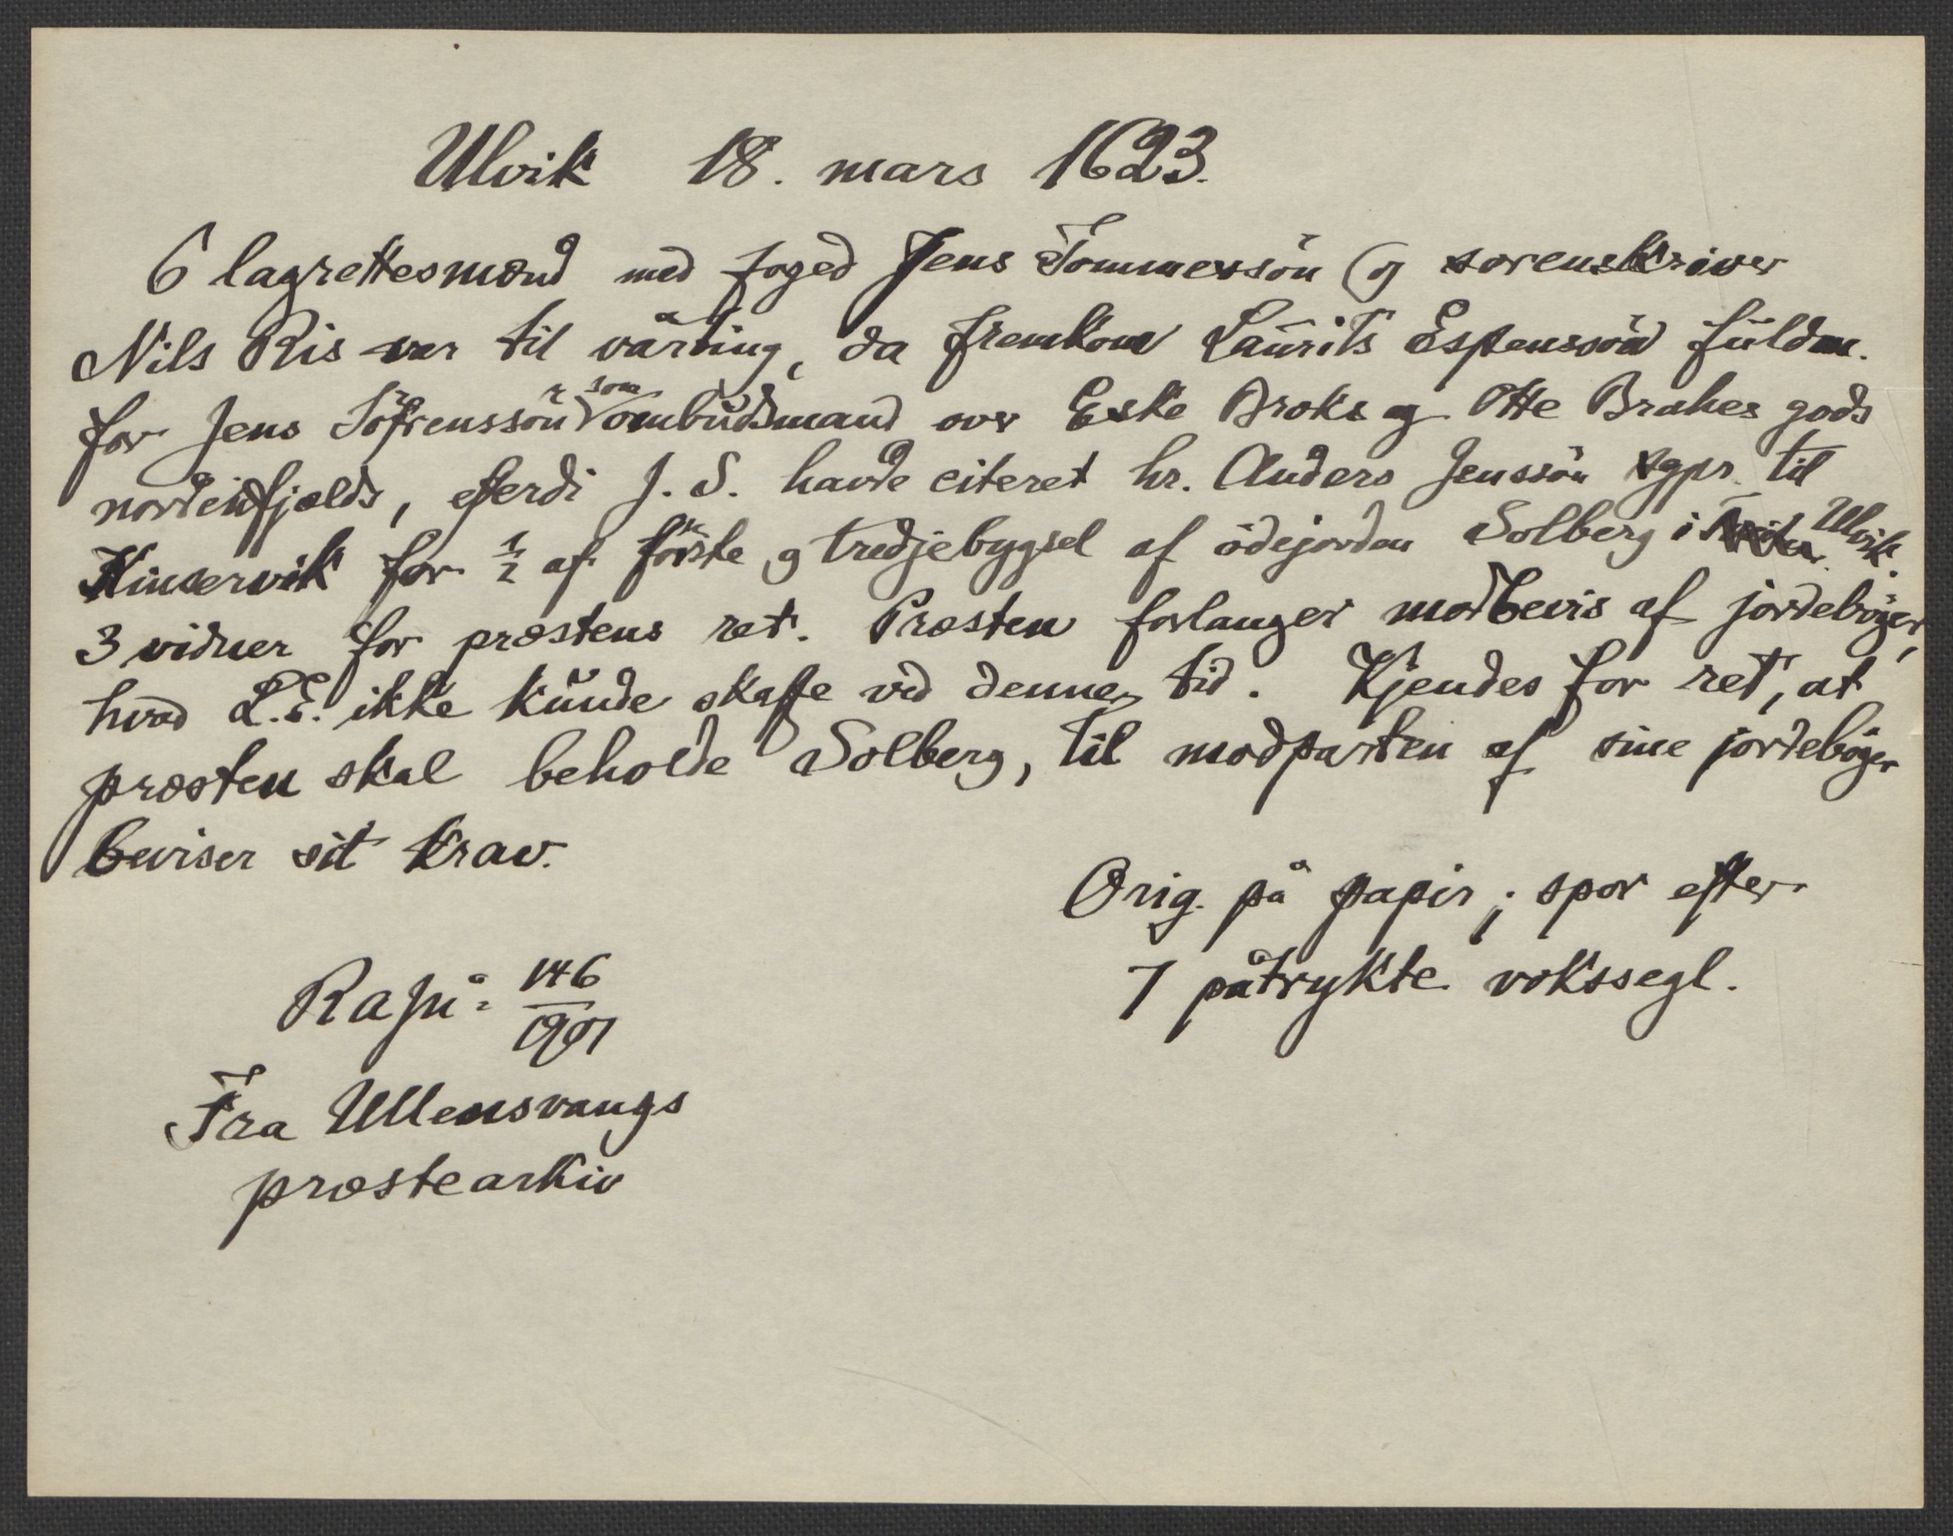 Ulvik 18. mars 1623.
6 lagrettesmænd med foged Jens Tommessön og sorenskriver
Nils Ris var til vårting, da fremkom Laurits Espenssön fuldm.
for Jens Söfrenssön som ombudsmand over Eske Broks og Otte Brahes gods
nordenfjælds, eferdi J. S. havde citeret hr. Anders Jenssön sgpr. til
Kinservik for ½ af förste og tredjebygsel af ödejorden Solberg i Ulvik.
3 vidner for præstens ret. Præsten forlanger modbevis af jordebøger,
hvad L. E. ikke kunde skaffe ved denne tid. Kjendes for ret, at
præsten skal beholde Solberg, til modparten af sine jordebøger
beviser sit krav.
Orig. på papir; spor efter
7 påtrykte vokssegl.
Rapu: 146/1901
Fra Ullensvangs
præstearkiv